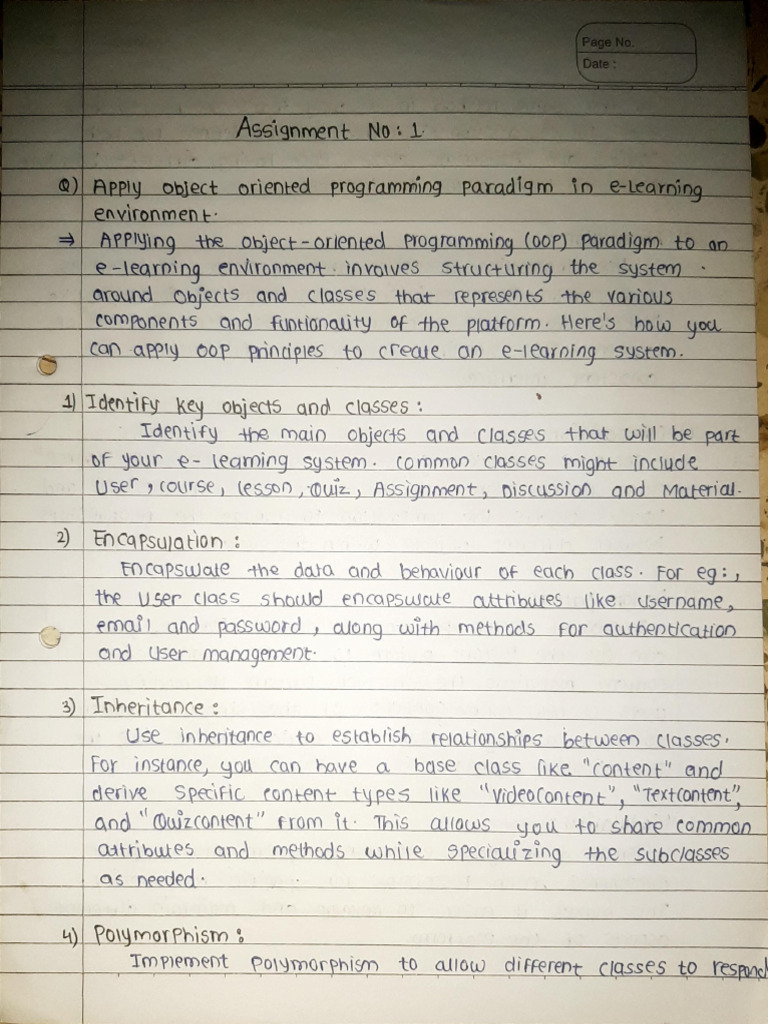 Page No.
Date :
Assignment No : 1.
Q) Apply object oriented programming paradigm in e-learning
environment.
⇒ Applying the object-oriented programming (OOP) paradigm to an
e-learning environment involves structuring the system
around objects and classes that represents the various
components and funtionality of the platform. Here's how you
can apply OOP principles to create an e-learning system.
1) Identify key objects and classes :
Identify the main objects and classes that will be part
of your e-learning system. Common classes might include
User, course, lesson, Quiz, Assignment, Discussion and Material.
2) Encapsulation :
Encapsulate the data and behaviour of each class. For eg:,
the User class should encapsulate attributes like username,
email and password, along with methods for authentication
and user management.
3) Inheritance :
Use inheritance to establish relationships between classes.
For instance, you can have a base class like "content" and
derive specific content types like "VideoContent", "TextContent",
and "Quizcontent" from it. This allows you to share common
attributes and methods while specializing the subclasses
as needed.
4) Polymorphism :
Implement polymorphism to allow different classes to respond